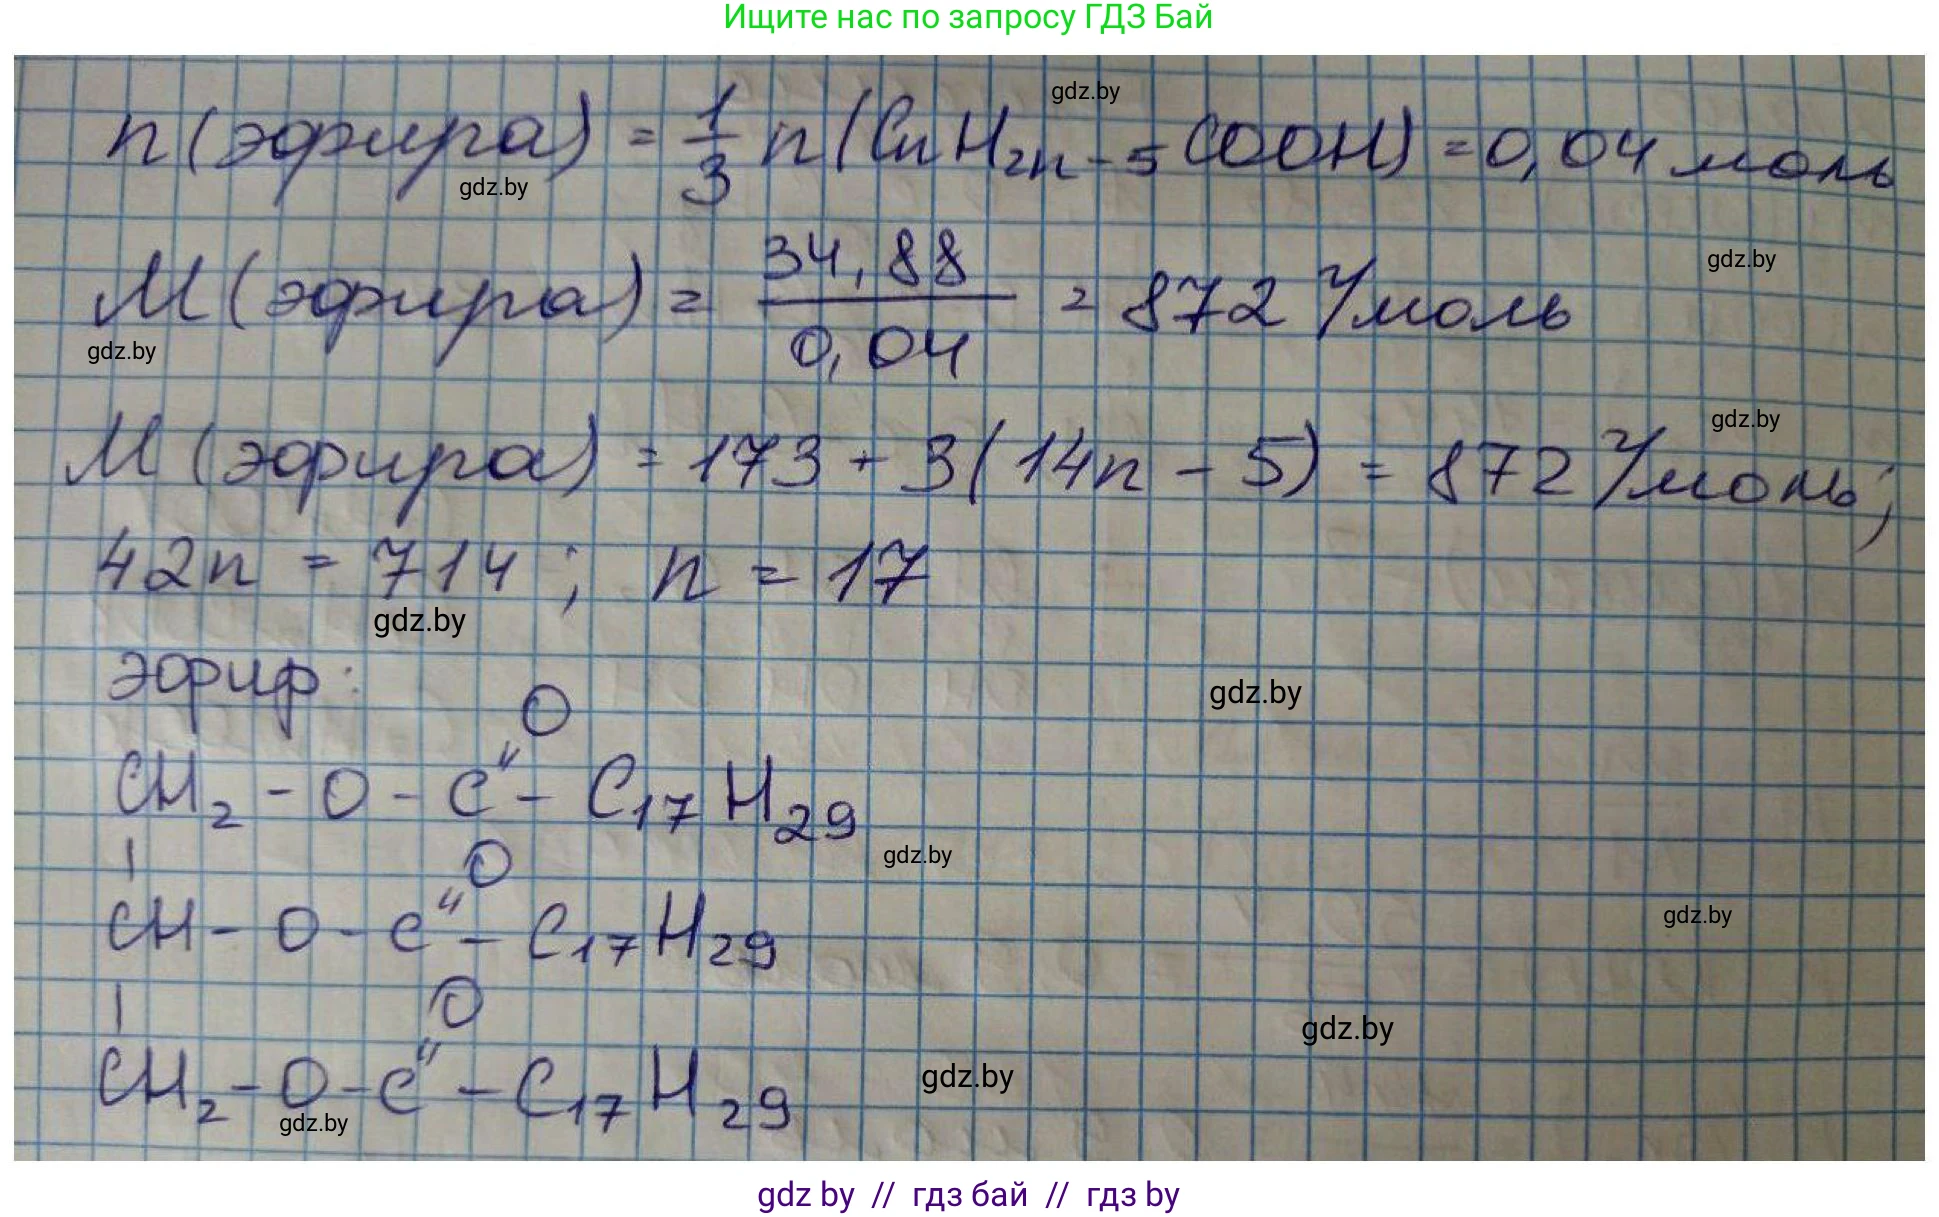 Ищите нас по запросу ГДЗ Бай
gdz.by
n(эфира) = 1/3 n(CnH2n-5COOH) = 0,04 моль
gdz.by
gdz.by
M(эфира) = 34,88/0,04 = 872 г/моль
gdz.by
gdz.by
M(эфира) = 173 + 3(14n - 5) = 872 г/моль;
42n = 714; n = 17
gdz.by
эфир:
gdz.by
O
"
CH2 - O - C - C17H29
gdz.by
| O
"
gdz.by
CH - O - C - C17H29
| O
gdz.by
"
CH2 - O - C - C17H29
gdz.by
gdz.by
gdz by // гдз бай // гдз by